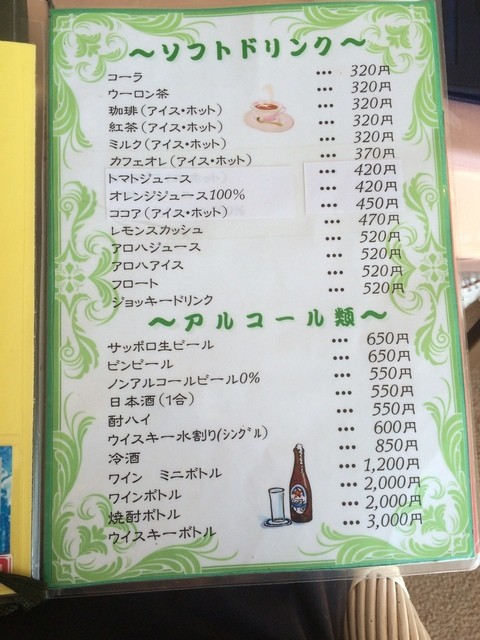 ～ソフトドリンク～
コーラ ••• 320円
ウーロン茶 ••• 320円
珈琲(アイス・ホット) ••• 320円
紅茶(アイス・ホット) ••• 320円
ミルク(アイス・ホット) ••• 320円
カフェオレ(アイス・ホット) ••• 370円
トマトジュース ••• 420円
オレンジジュース100% ••• 420円
ココア(アイス・ホット) ••• 450円
レモンスカッシュ ••• 470円
アロハジュース ••• 520円
アロハアイス ••• 520円
フロート ••• 520円
ジョッキードリンク ••• 520円
～アルコール類～
サッポロ生ビール ••• 650円
ビンビール ••• 650円
ノンアルコールビール0% ••• 550円
日本酒(1合) ••• 550円
酎ハイ ••• 550円
ウイスキー水割り(ｼﾝｸﾞﾙ) ••• 600円
冷酒 ••• 850円
ワイン ミニボトル ••• 1,200円
ワインボトル ••• 2,000円
焼酎ボトル ••• 2,000円
ウイスキーボトル ••• 3,000円